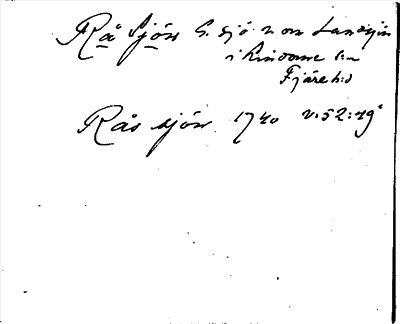 Rå Sjön L. sjö n om Landsjön
i Kindome sn
Fjäre hd
Rås sjön 1740 v:52:49